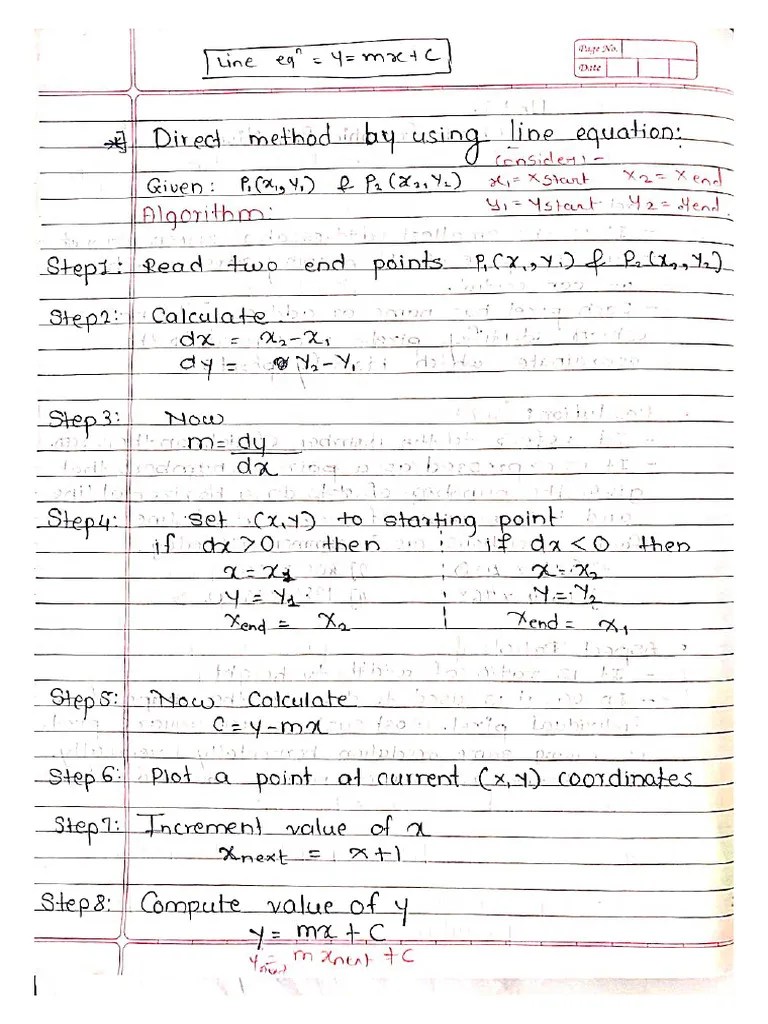 Line eqⁿ = y = mx + C
Page No.
Date
Direct method by using line equation:
Consider:-
Given: P₁(x₁, y₁) & P₂(x₂, y₂) x₁ = xstart x₂ = xend
Algorithm: y₁ = ystart y₂ = yend
Step1: Read two end points P₁(x₁, y₁) & P₂(x₂, y₂)
Step2: Calculate
dx = x₂ - x₁
dy = y₂ - y₁
Step3: Now
m = dy
dx
Step4: Set (x, y) to starting point
if dx > 0 then if dx < 0 then
x = x₁ x = x₂
y = y₁ y = y₂
xend = x₂ xend = x₁
Step5: Now Calculate
C = y - mx
Step6: Plot a point at current (x, y) coordinates
Step7: Increment value of x
xnext = x + 1
Step8: Compute value of y
y = mx + C
ynext = m xnext + C